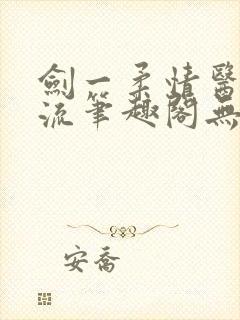 劍一柔情醫
流筆趣閣無
安喬